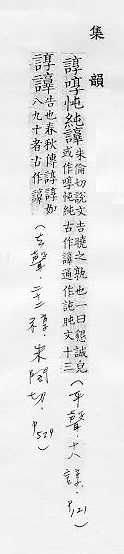 集韻
諄啍忳純
朱倫切說文告曉之孰也一曰懇誠皃
或作啍忳純古作通作訰肫文十三
(平聲.十八諄.P.121)
諄
告也春秋傳諄諄如
八九十者古作
(去聲.二十二稕.朱閏切.P.539)